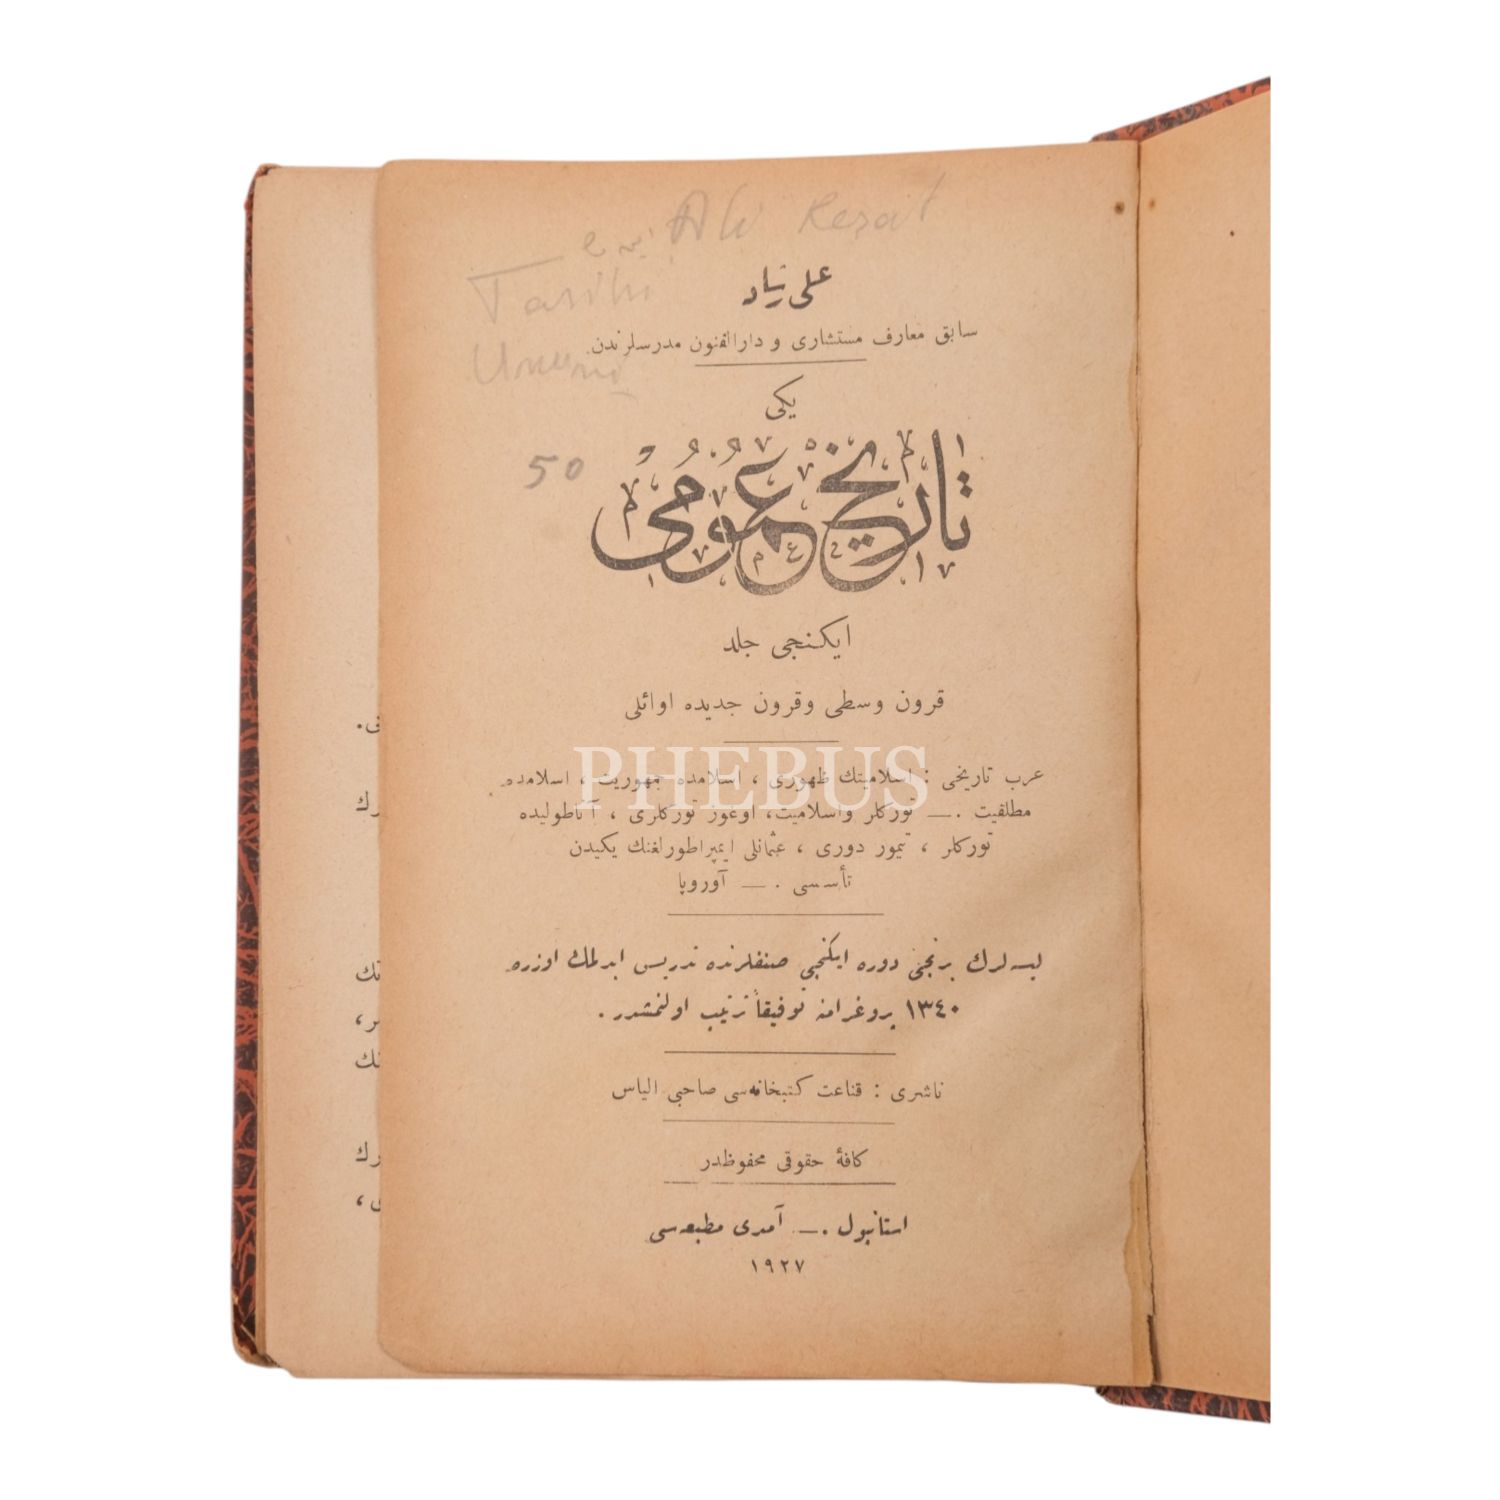 Ali Resat
Tarihi
Umumi
50
علی رشاد
سابق معارف مستشاری و دارالفنون مدرسلرندن
یکی
تاریخ عمومی
ایکنجی جلد
قرون وسطی وقرون جدیده اوائلی
عرب تاریخی : اسلامیتك ظهوری ، اسلامده جمهوریت ، اسلامده
مطلقیت . — تورکلر واسلامیت، اوغوز تورکلری ، آناطولیده
تورکلر ، تیمور دوری ، عثمانلی ایمپراطورلغنك یکیدن
تأسسی . — آوروپا
لیسه لرك برنجی دوره ایکنجی صنفلرنده تدریس ایدلمك اوزره
١٣٤٠ پروغرامنه توفیقاً ترتیب اولنمشدر .
ناشری : قناعت کتبخانه‌سی صاحبی الیاس
کافهٔ حقوقی محفوظدر
استانبول . — آمدی مطبعه‌سی
١٩٢٧
PHEBUS